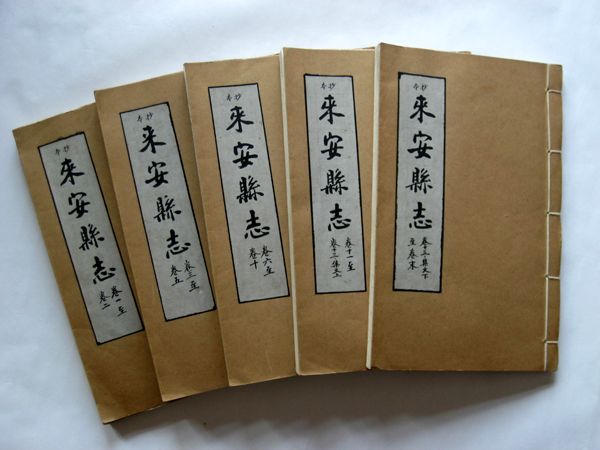 抄本
來安縣志
卷一至
卷二
抄本
來安縣志
卷三至
卷五
抄本
來安縣志
卷六至
卷十
抄本
來安縣志
卷十一至
卷十三集文上
抄本
來安縣志
卷十三集文下
至卷末